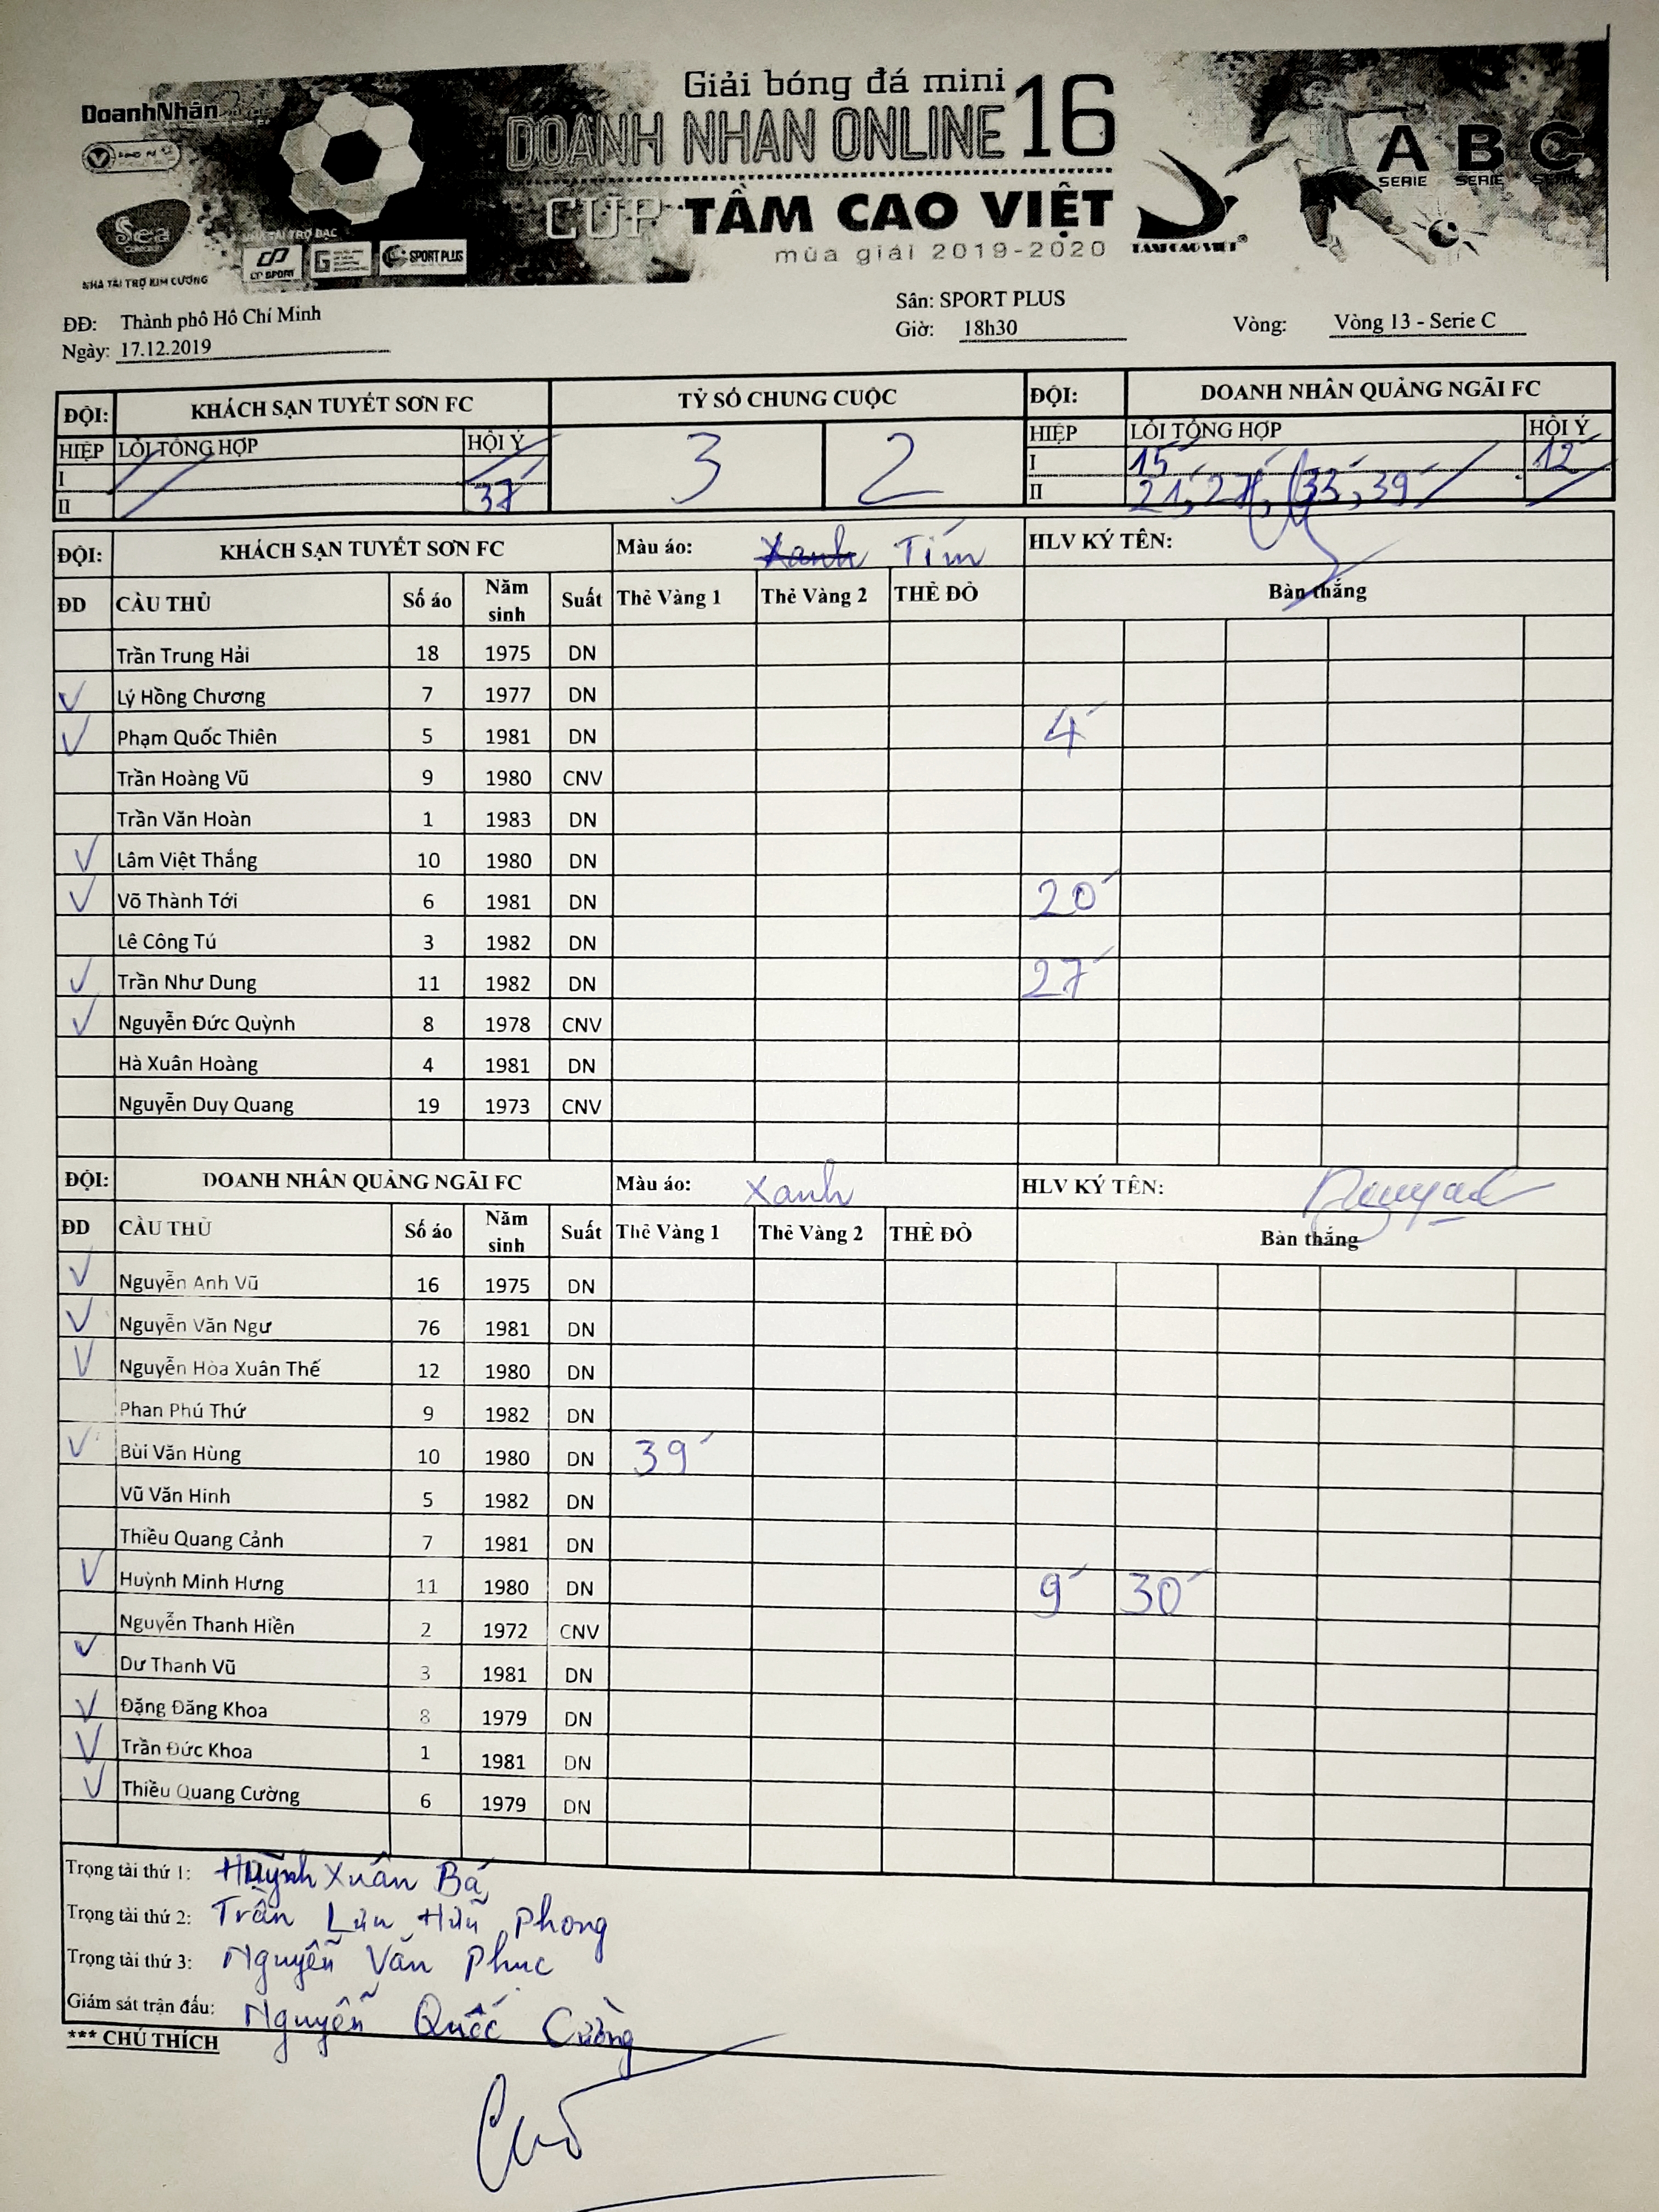 Giải bóng đá mini
DoanhNhân
DOANH NHAN ONLINE 16
A B C
SERIE SERIE SERIE
CUP TẦM CAO VIỆT
Sea
mùa giải 2019-2020
TAM CAO VIET®
NHÀ TÀI TRỢ BẠC
CP SPORT
SPORT PLUS
NHÀ TÀI TRỢ KIM CƯƠNG
ĐĐ: Thành phố Hồ Chí Minh
Sân: SPORT PLUS
Ngày: 17.12.2019
Giờ: 18h30
Vòng: Vòng 13 - Serie C
ĐỘI: KHÁCH SẠN TUYẾT SƠN FC TỶ SỐ CHUNG CUỘC ĐỘI: DOANH NHÂN QUẢNG NGÃI FC
HIỆP LỖI TỔNG HỢP HỘI Ý 3 2 HIỆP LỖI TỔNG HỢP HỘI Ý
I I 15' 12'
II 37' II 21', 27', 33', 39'
ĐỘI: KHÁCH SẠN TUYẾT SƠN FC Màu áo: Xanh Tím HLV KÝ TÊN:
ĐD CẦU THỦ Số áo Năm sinh Suất Thẻ Vàng 1 Thẻ Vàng 2 THẺ ĐỎ Bàn thắng
Trần Trung Hải 18 1975 DN
✓ Lý Hồng Chương 7 1977 DN
✓ Phạm Quốc Thiên 5 1981 DN 4'
Trần Hoàng Vũ 9 1980 CNV
Trần Văn Hoàn 1 1983 DN
✓ Lâm Việt Thắng 10 1980 DN
✓ Võ Thành Tới 6 1981 DN 20'
Lê Công Tú 3 1982 DN
✓ Trần Như Dung 11 1982 DN 27'
✓ Nguyễn Đức Quỳnh 8 1978 CNV
Hà Xuân Hoàng 4 1981 DN
Nguyễn Duy Quang 19 1973 CNV
ĐỘI: DOANH NHÂN QUẢNG NGÃI FC Màu áo: Xanh HLV KÝ TÊN:
ĐD CẦU THỦ Số áo Năm sinh Suất Thẻ Vàng 1 Thẻ Vàng 2 THẺ ĐỎ Bàn thắng
✓ Nguyễn Anh Vũ 16 1975 DN
✓ Nguyễn Văn Ngư 76 1981 DN
✓ Nguyễn Hòa Xuân Thế 12 1980 DN
Phan Phú Thứ 9 1982 DN
✓ Bùi Văn Hùng 10 1980 DN 39'
Vũ Văn Hinh 5 1982 DN
Thiều Quang Cảnh 7 1981 DN
✓ Huỳnh Minh Hưng 11 1980 DN 9' 30'
Nguyễn Thanh Hiền 2 1972 CNV
✓ Dư Thanh Vũ 3 1981 DN
✓ Đặng Đăng Khoa 8 1979 DN
✓ Trần Đức Khoa 1 1981 DN
✓ Thiều Quang Cường 6 1979 DN
Trọng tài thứ 1: Huỳnh Xuân Bá
Trọng tài thứ 2: Trần Lưu Hữu Phong
Trọng tài thứ 3: Nguyễn Văn Phuc
Giám sát trận đấu: Nguyễn Quốc Cường
*** CHÚ THÍCH